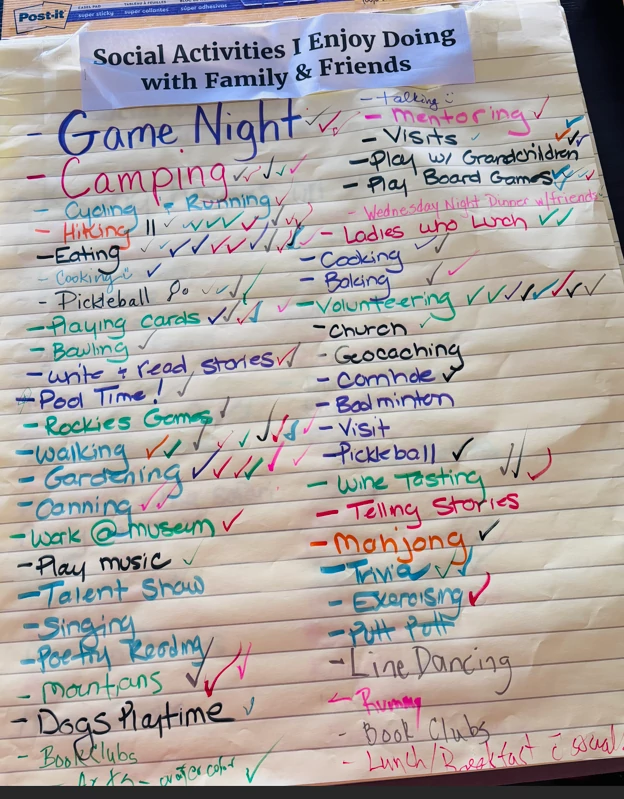 Post-it
super sticky
super collantes
súper adhesivas
Social Activities I Enjoy Doing
with Family & Friends
- Game Night
- Camping
- Cycling + Running
- Hiking
- Eating
- Cooking
- Pickleball
- Playing cards
- Bowling
- write + read stories
- Pool Time!
- Rockies Games
- Walking
- Gardening
- Canning
- Work @ museum
- Play music
- Talent Show
- Singing
- Poetry Reading
- Mountians
- Dogs Playtime
- Book Clubs
- talking
- mentoring
- Visits
- Play w/ Grandchildren
- Play Board Games
- Wednesday Night Dinner w/friends
- Ladies who Lunch
- Cooking
- Baking
- Volunteering
- church
- Geocaching
- Cornhole
- Badminton
- Visit
- Pickleball
- Wine Tasting
- Telling Stories
- Mahjong
- Trivia
- Exercising
- Putt Putt
- Line Dancing
- Rummy
- Book Clubs
- Lunch/Breakfast c̄ social